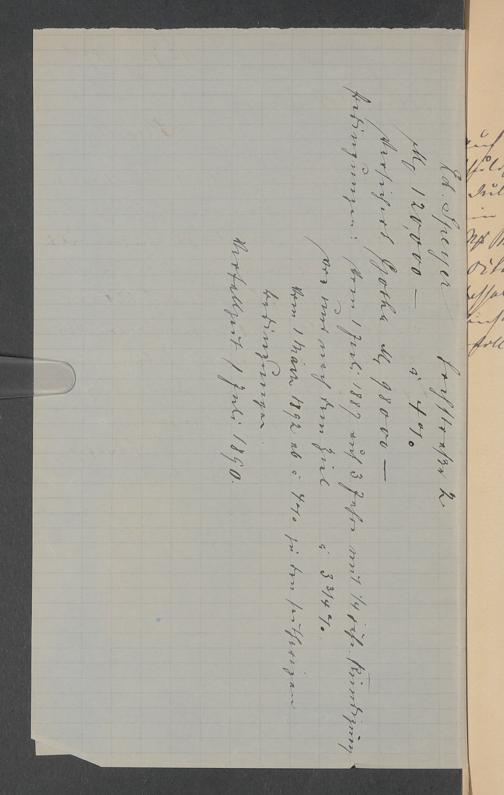 Ed. Speyer Hochstraße 2
M 120,000 — à 4 %
Versichert Gotha M 98000 —
Bedingungen: vom 1 Juli 1887 auf 3 Jahre mit 1/4 jähr. Kündigung
vor und nach dem Ziel à 3 3/4 %
vom 1 März 1892 ab à 4 % zu den seitherigen
Bedingungen.
Verfallzeit 1 Juli 1890.